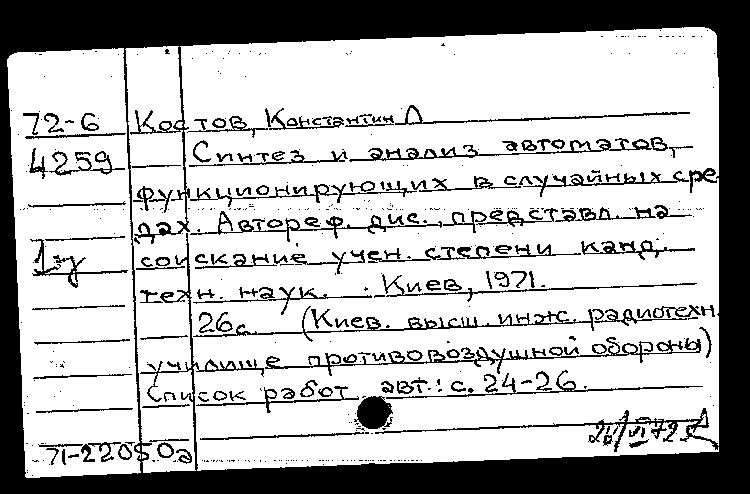 72-6 Костов, Константин Л
4259 Синтез и анализ автоматов,
функционирующих в случайных сре-
дах. Автореф. дис., представл. на
1зу соискание учен. степени канд.
техн. наук. Киев, 1971.
26с. (Киев. высш. инж. радиотехн.
училище противовоздушной обороны)
Список работ авт.: с. 24-26.
71-22050а